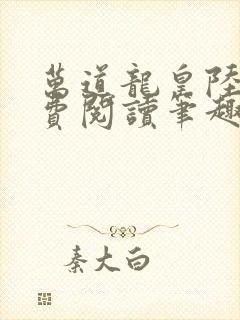 萬道龍皇陸
費閱讀筆趣
秦大白